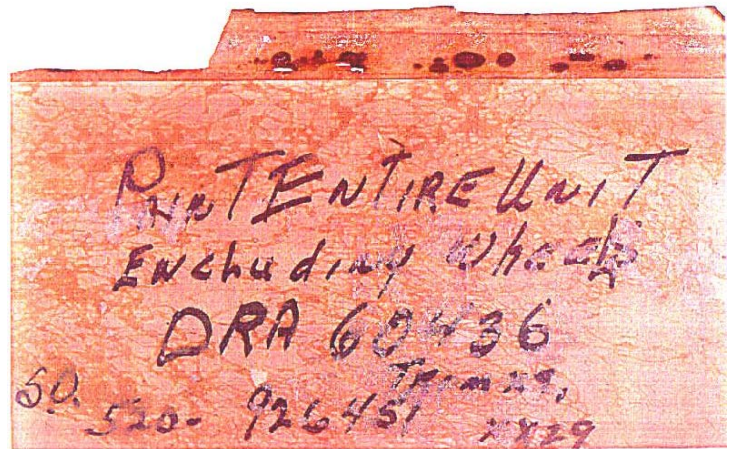 PAINT ENTIRE UNIT
ENcluding Wheels
DRA 60436
S.O. 520- 926451 XX29